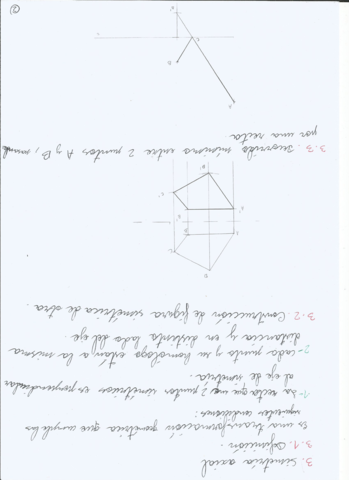 3. Simetría axial
3.1. Definición.
Es una transformación geométrica que cumple las
siguientes condiciones:
1- La recta que une 2 puntos simétricos es perpendicular
al eje de simetría.
2- Cada punto y su homólogo están a la misma
distancia y en distinto lado del eje.
3.2. Construcción de figura simétrica de otra.
D
C
E
B
A
A'
3.3. Recorrido mínimo entre 2 puntos A y B,
por una recta
A
B